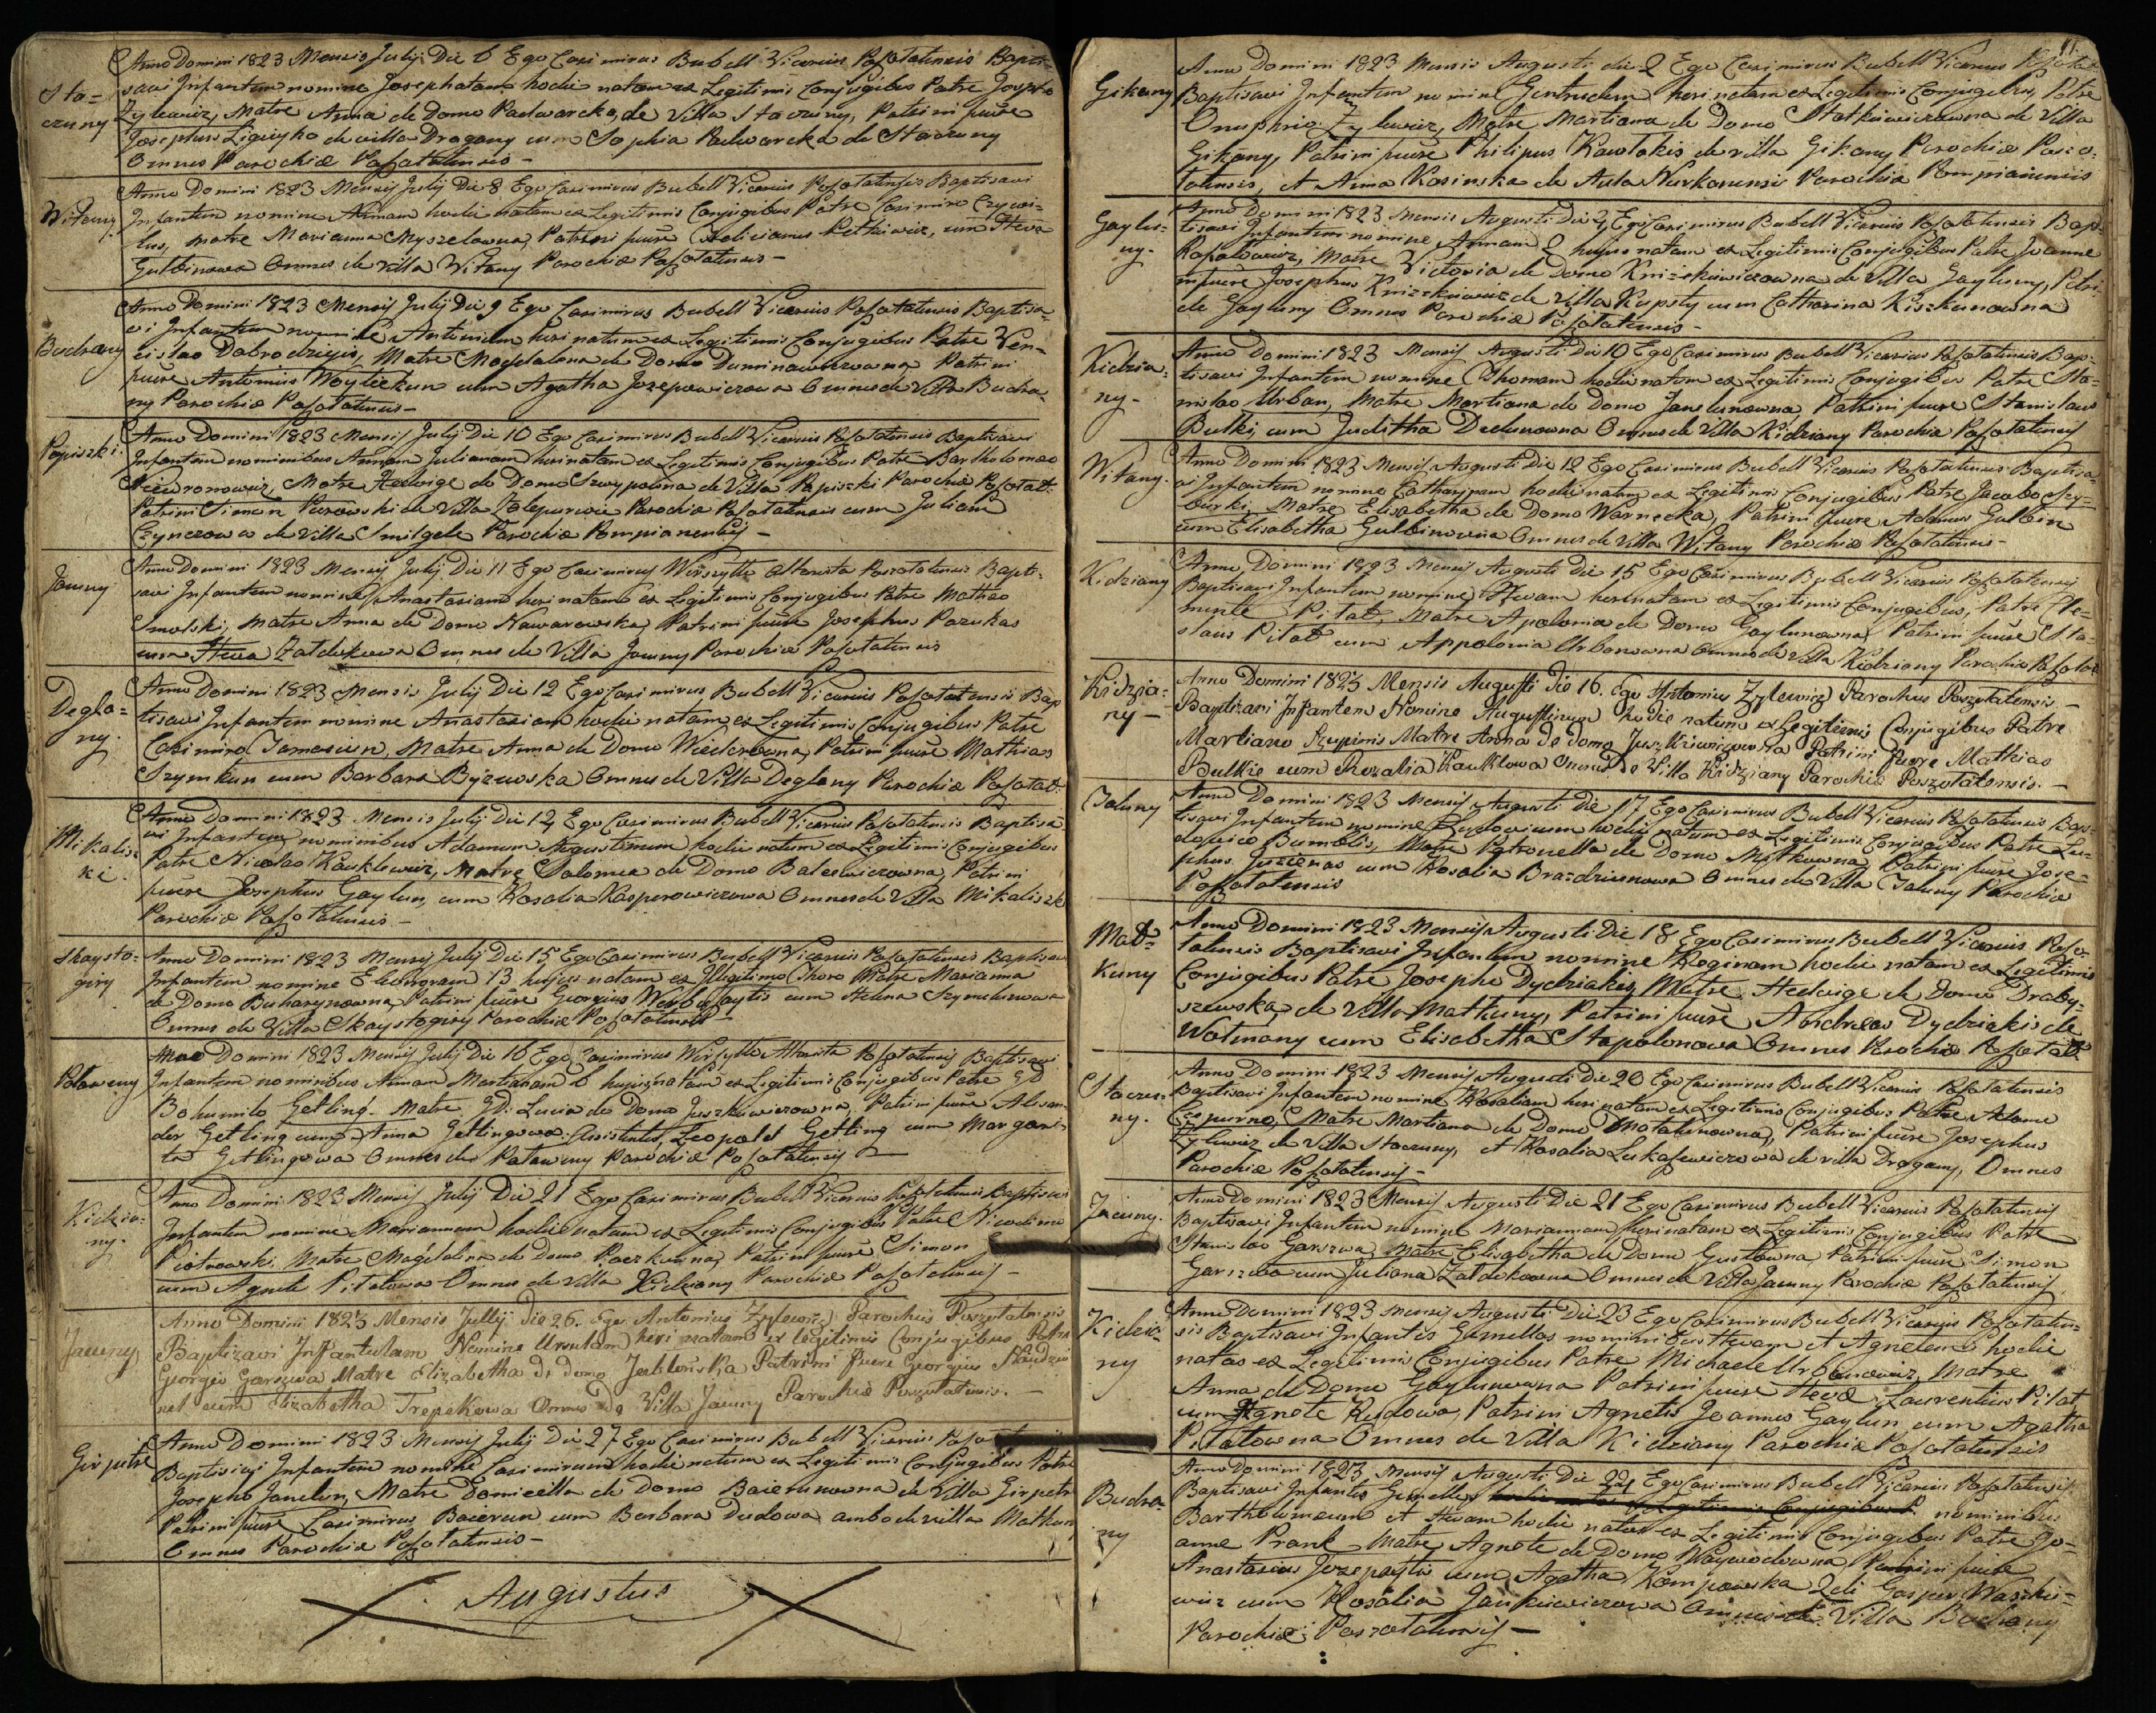 Sta=
czuny
Anno Domini 1823 Mensis Julij Die 6 Ego Casimirus Bubell Vicarius Poszotatensis Bapti=
savi Infantem nomine Josephatam hodie natam ex Legitimis Conjugibus Patre Josepho
Zylewicz, Matre Anna de Domo Padwarcka, de Villa Staczuny, Patrini fuere
Josephus de villa Dragany cum Sophia Padwarcka de Staczuny
Omnes Parochiæ Poszotatensis –
Witany
Anno Domini 1823 Mensis Julij Die 8 Ego Casimirus Bubell Vicarius Poszotatensis Baptisavi
Infantem nomine Annam hodie natam ex Legitimis Conjugibus Patre Casimiro
Matre Marianna Myszelowna, Patrini fuere Felicianus Petkiewicz, cum Heva
Gulbinowa Omnes de Villa Witany Parochiæ Poszotatensis –
Budrany
Anno Domini 1823 Mensis Julij Die 9 Ego Casimirus Bubell Vicarius Poszotatensis Baptisa=
vi Infantem nomine Antonium heri natum ex Legitimis Conjugibus Patre Ven=
ceslao Dabrodziejis, Matre Magdalena de Domo Patrini
fuere Antonius Woytiekun cum Agatha Jozepowiczowa Omnes de Villa Budra=
ny Parochiæ Poszotatensis –
Papiszki
Anno Domini 1823 Mensis Julij Die 10 Ego Casimirus Bubell Vicarius Poszotatensis Baptisavi
Infantem nominibus Annam Julianam heri natam ex Legitimis Conjugibus Patre Bartholomæo
Matre Hedvige de Domo Szwypolina de Villa Papiszki Parochiæ Poszotat:
Patrini Simon de Villa Parochiæ Poszotatensis cum Juliana
Czynczowa de Villa Smilgele Parochiæ Pompianensis –
Jauuny
Anno Domini 1823 Mensis Julij Die 11 Ego Casimirus Wirszyllo Altarista Poszotatensis Bapti=
savi Infantem nomine Anastasiam heri natam ex Legitimis Conjugibus Patre Matheo
Smolski, Matre Anna de Domo Kawarowska, Patrini fuere Josephus Pazukas
cum Heva Zaldokowa Omnes de Villa Jauuny Parochiæ Poszotatensis
Degla=
ny.
Anno Domini 1823 Mensis Julij Die 12 Ego Casimirus Bubell Vicarius Poszotatensis Bap
tisavi Infantem nomine Anastasiam hodie natam ex Legitimis Conjugibus Patre
Casimiro Matre Anna de Domo Patrini fuere Mathias
Szymkun cum Barbara Omnes de Villa Deglany Parochiæ Poszotat:
Mikalisz=
ki
Anno Domini 1823 Mensis Julij Die 14 Ego Casimirus Bubell Vicarius Poszotatensis Baptisa
vi Infantem nominibus Adamum Augustinum hodie natum ex Legitimis Conjugibus
Patre Nicolao Kauklewicz, Matre Salomea de Domo Balcewiczowna, Patrini
fuere Josephus Gaylun, cum Rosalia Kasperowiczowa Omnes de Villa Mikaliszki
Parochiæ Poszotatensis –
Skaysto=
giry
Anno Domini 1823 Mensis Julij Die 15 Ego Casimirus Bubell Vicarius Poszotatensis Baptisavi
Infantem nomine Eleonoram 13 hujus natam ex Illegitimo Thoro Matre Marianna
de Domo Patrini fuere Georgius cum Helena
Omnes de Villa Skaystogiry Parochiæ Poszotatensis –
Potaweny
Anno Domini 1823 Mensis Julij Die 16 Ego Casimirus Wirszyllo Altarista Poszotatensis Baptisavi
Infantem nominibus Annam Martianam 6 hujus natam ex Legitimis Conjugibus Patre GD
Bohumilo Getling. Matre GD: Lucia de Domo Juszkiewiczowna, Patrini fuere Alexan=
der Getling cum Anna Getlingowa. Assistentes, Leopold Getling cum Margari=
ta Getlingowa Omnes de Potaweny Parochiæ Poszotatensis –
Kidzia=
ny.
Anno Domini 1823 Mensis Julij Die 21 Ego Casimirus Bubell Vicarius Poszotatensis Baptisavi
Infantem nomine Mariannam hodie natam ex Legitimis Conjugibus Patre Nicodimo
Piotrowski, Matre Magdalena de Domo Patrini fuere Simon
cum Agnete Pitatowa Omnes de Villa Kidziany Parochiæ Poszotatensis –
Jauuny
Anno Domini 1823 Mensis Jullij Die 26. Ego Antonius Zylewicz Parochus Poszotatensis
Baptizavi Infantulam Nomine Ursulam heri natam ex legitimis Conjugibus Patre
Georgio Garszwa Matre Elizabetha de domo Jachłońska Patrini fuere Georgius
cum Elizabetha Trepekowa Omnes de Villa Jauuny Parochiæ Poszotatensis. –
Girpetre
Anno Domini 1823 Mensis Julij Die 27 Ego Casimirus Bubell Vicarius
Baptisavi Infantem nomine Casimirum hodie natum ex Legitimis Conjugibus Patre
Josepho Janelun, Matre Domicella de Domo Baierunowna de Villa Girpetre
Patrini fuere Casimirus Baierun cum Barbara Dudowa ambo de villa Matkuny
Omnes Parochiæ Poszotatensis –
Augustus
Gikany
Anno Domini 1823 Mensis Augusti die 2 Ego Casimirus Bubell Vicarius
Baptisavi Infantem nomine Gertrudem heri natam ex Legitimis Conjugibus, Patre
Onuphrio Zylewicz, Matre Martiana de Domo Statkiewiczowna de Villa
Gikany, Patrini fuere Philipus Kawlakis de villa Gikany Parochiæ Poszo=
tatensis, et Anna Kosinska de Aula Parochiæ Pompianensis
Gaylu=
ny.
Anno Domini 1823 Mensis Augusti Die 4 Ego Casimirus Bubell Vicarius Poszotatensis Bap=
tisavi Infantem nomine Annam 2 hujus natam ex Legitimis Conjugibus Patre Joanne
Rafałowicz, Matre Victoria de Domo de Villa Gayluny, Patri=
ni fuere Josephus de Villa Kupsty cum Catharina Kiszkunowna
de Gayluny Omnes Parochiæ Poszotatensis –
Kidzia=
ny –
Anno Domini 1823 Mensis Augusti Die 10 Ego Casimirus Bubell Vicarius Poszotatensis Bap=
tisavi Infantem nomine Thomam hodie natum ex Legitimis Conjugibus Patre Sta=
nislao Urban, Matre Martiana de Domo Janelunowna, Patrini fuere Stanislaus
Bulki, cum Juditha Dedunowna Omnes de Villa Kidziany Parochiæ Poszotatensis
Witany.
Anno Domini 1823 Mensis Augusti Die 12 Ego Casimirus Bubell Vicarius Poszotatensis Baptisa=
vi Infantem nomine Catharinam hodie natam ex Legitimis Conjugibus Patre Jacobo Szy=
burki, Matre Elisabetha de Domo Warnecka, Patrini fuere Adamus Gulbin
cum Elisabetha Gulbinowna Omnes de Villa Witany Parochiæ Poszotatensis –
Kidziany
Anno Domini 1823 Mensis Augusti Die 15 Ego Casimirus Bubell Vicarius Poszotatensis
Baptisavi Infantem nomine Hevam heri natam ex Legitimis Conjugibus, Patre Cle=
mente Pitat, Matre Apolonia de Domo Gaylunowna, Patrini fuere Sta=
slaus Pitat cum Appolonia Urbanowna Omnes de Villa Kidziany Parochiæ Poszotat
Kidzia=
ny –
Anno Domini 1823 Mensis Augusti Die 16. Ego Antonius Zylewicz Parochus Poszotatensis –
Baptizavi Infantem Nomine Augustinum hodie natum ex Legitimis Conjugibus Patre
Martiano Matre Anna de domo Juszkiewiczowna Patrini fuere Mathias
Bulkie cum Rozalia Kauklowa Omnes de Villa Kidziany Parochiæ Poszotatensis. –
Jaluny
Anno Domini 1823 Mensis Augusti Die 17 Ego Casimirus Bubell Vicarius Poszotatensis Bap=
tisavi Infantem nomine Ludovicum hodie natum ex Legitimis Conjugibus Patre Lu=
dovico Bumblis, Matre Petronella de Domo Mitkowna, Patrini fuere Jose=
phus cum Rosalia Brazdziunowa Omnes de Villa Jaluny Parochiæ
Poszotatensis
Mat=
kuny
Anno Domini 1823 Mensis Augusti Die 18 Ego Casimirus Bubell Vicarius Poszo=
tatensis Baptisavi Infantem nomine Roginam hodie natam ex Legitimis
Conjugibus Patre Josepho Dydziakis, Matre Hedvige de Domo Draby=
szewska, de Villa Matkuny, Patrini fuere Andreas Dydziakis de
Wotmany cum Elisabetha Stapolonowa Omnes Parochiæ Poszotat
Staczu=
ny.
Anno Domini 1823 Mensis Augusti Die 20 Ego Casimirus Bubell Vicarius Poszotatensis
Baptisavi Infantem nomine Rosaliam heri natam ex Legitimis Conjugibus Patre Adamo
Czepurno, Matre Martiana de Domo Motakunowna, Patrini fuere Josephus
Zylewicz de Villa Staczuny, et Rosalia Lukaszewiczowa de villa Dragany, Omnes
Parochiæ Poszotatensis –
Jauuny.
Anno Domini 1823 Mensis Augusti Die 21 Ego Casimirus Bubell Vicarius Poszotatensis
Baptisavi Infantem nomine Mariannam heri natam ex Legitimis Conjugibus Patre
Stanislao Garszwa, Matre Elisabetha de Domo Patrini fuere Simon
Garszwa cum Juliana Zaldokowna Omnes de Villa Jauuny Parochiæ Poszotatensis
Kidzia=
ny
Anno Domini 1823 Mensis Augusti Die 23 Ego Casimirus Bubell Vicarius Poszotaten=
sis Baptisavi Infantes Gemellos nominibus Hevam et Agnetem hodie
natas ex Legitimis Conjugibus Patre Michaele Urbanowicz, Matre
Anna de Domo Gaylunowna Patrini fuere Hevæ Laurentius Pitat
cum Agnete Rudowa, Patrini Agnetis Joannes Gaylun cum Agatha
Pitatowna Omnes de Villa Kidziany Parochiæ Poszotatensis
Budra=
ny
Anno Domini 1823 Mensis Augusti Die 24 Ego Casimirus Bubell Vicarius Poszotatensis
Baptisavi Infantes Gemellos hodie natos ex Legitimis Conjugibus P. nominibus
Bartholomeum et Hevam hodie natos ex Legitimis Conjugibus Patre Jo=
anne Prank Matre Agnete de Domo Woywodowna, Patrini fuere
Anastasius Jozepaytis cum Agatha 2di Gasper
wicz cum Rosalia Jankiewiczowa Omnes de Villa Budrany
Parochiæ Poszotatensis –